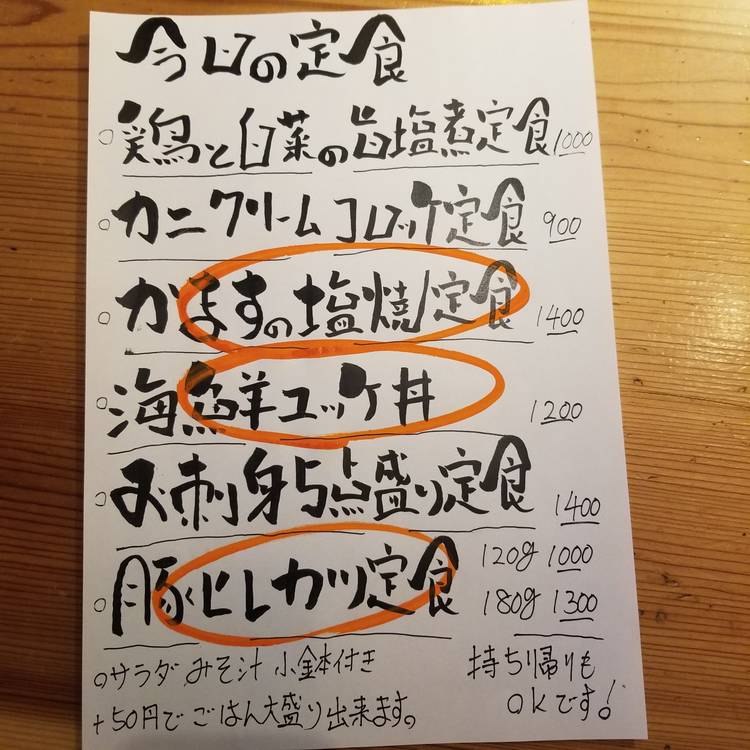 今日の定食
○鶏と白菜の旨塩煮定食 1000
○カニクリームコロッケ定食 900
○かますの塩焼定食 1400
○海鮮ユッケ丼 1200
○お刺身5点盛り定食 1400
○豚ヒレカツ定食 120g 1000
180g 1300
○サラダ みそ汁 小鉢付き
+50円でごはん大盛り出来ます。
持ち帰りも
OKです!